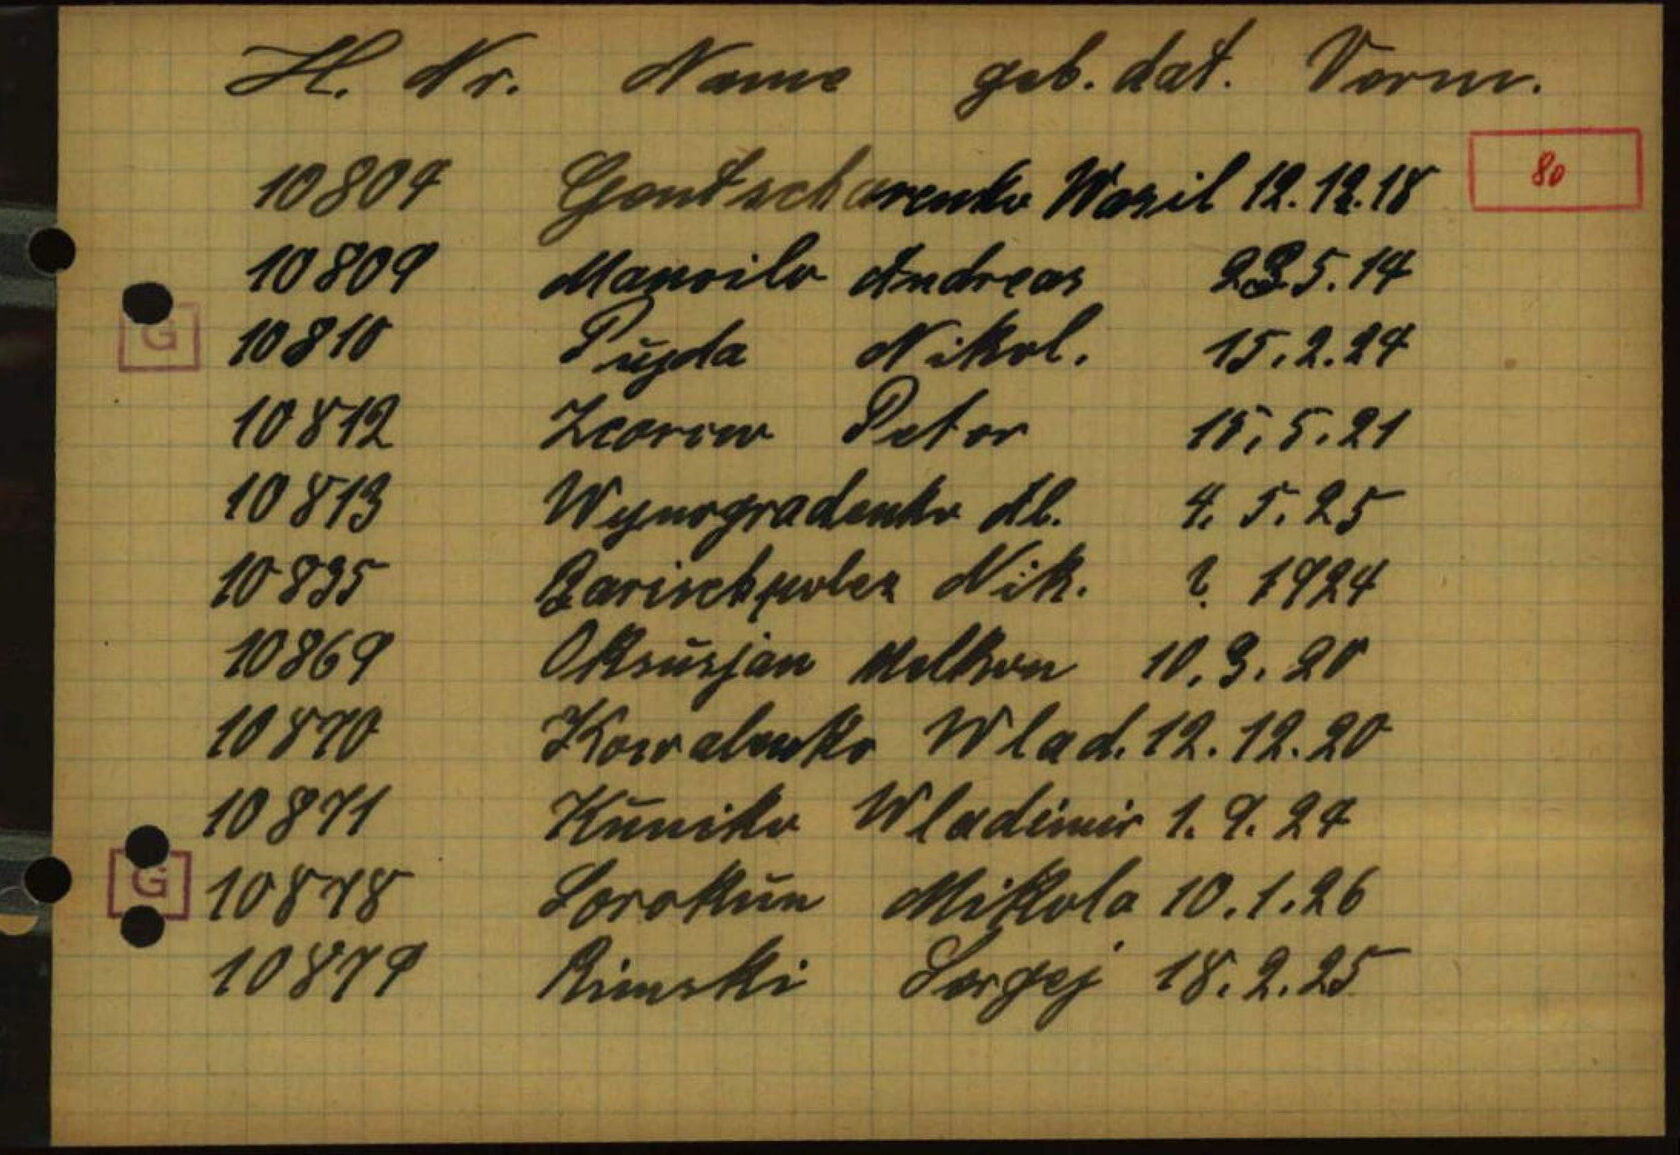 H. Nr. Name geb. dat. Verm.
80
10807 Gontscharenko Wasil 12.12.18
10809 Manoilo Andreas 23.5.14
G 10810 Pujda Nikol. 15.2.24
10812 Peter 15.5.21
10813 Wynogradenko Al. 4.5.25
10835 Barischpolez Nik. ? 1924
10869 Oksusjan Melkon 10.3.20
10870 Kowalenko Wlad. 12.12.20
10871 Kuniko Wladimir 1.9.24
G 10878 Sorokun Mikola 10.1.26
10879 Rimski Sergej 18.2.25